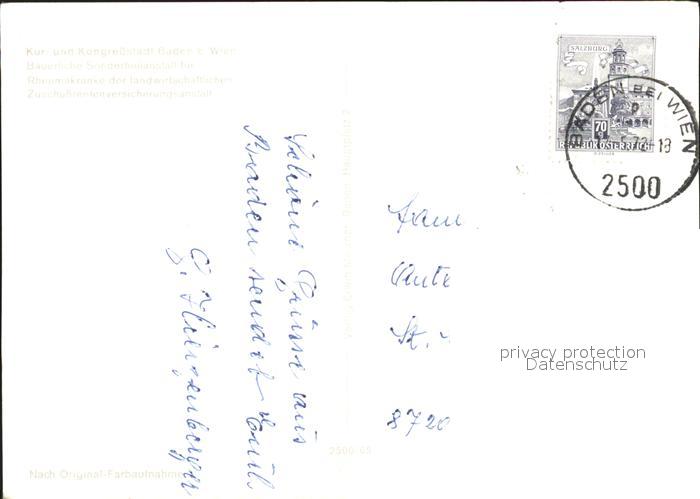 Kur- und Kongreßstadt Baden b. Wien
Bäuerliche Sonderheilanstalt für
Rheumakranke der landwirtschaftlichen
Zuschußrentenversicherungsanstalt
SALZBURG
70 g
REPUBLIK ÖSTERREICH
BADEN BEI WIEN
2500
Schöne Grüsse aus
Baden sendet Euch
Fam
8720
privacy protection
Datenschutz
2500/65
Nach Original-Farbaufnahme